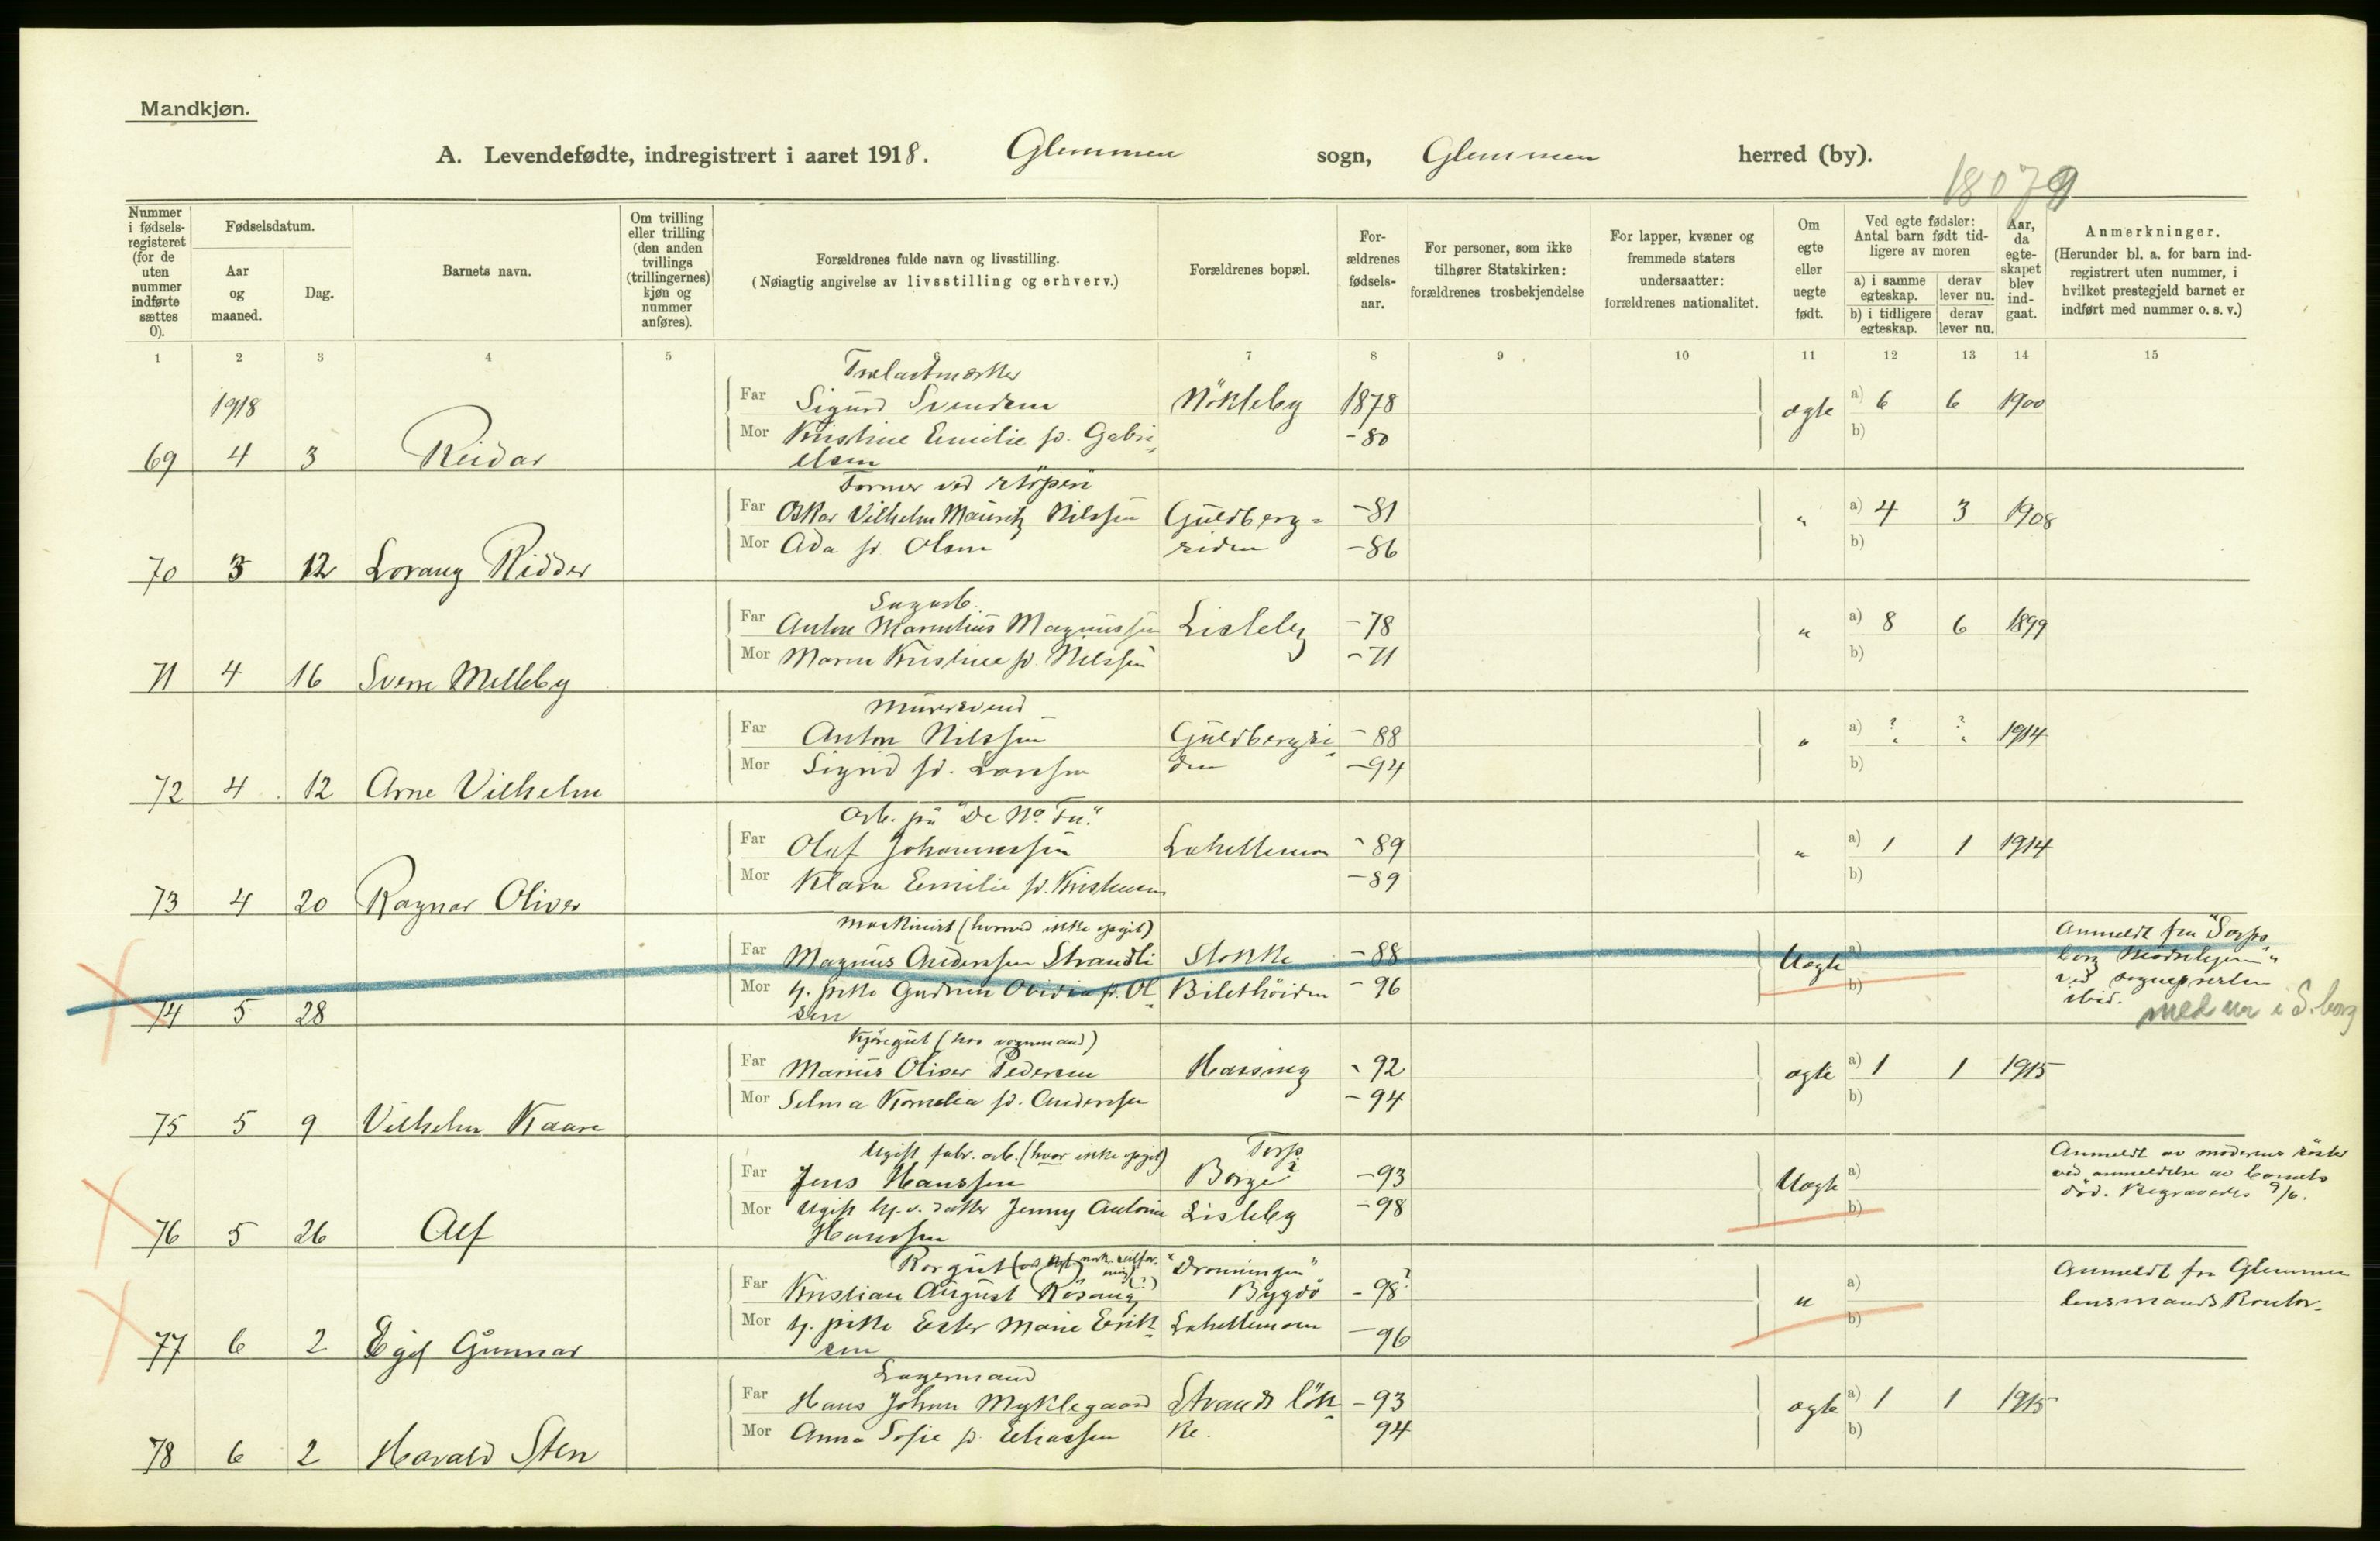 Mandkjøn.
A. Levendefødte, indregistrert i aaret 1918. Glemmen sogn, Glemmen herred (by).
18079
Nummer i fødsels-registeret (for de uten nummer indførte sættes 0).
Fødselsdatum.
Aar og maaned.
Dag.
Barnets navn.
Om tvilling eller trilling (den anden tvillings (trillingernes) kjøn og nummer anføres).
Forældrenes fulde navn og livsstilling.
(Nøiagtig angivelse av livsstilling og erhverv.)
Forældrenes bopæl.
For-ældrenes fødsels-aar.
For personer, som ikke tilhører Statskirken: forældrenes trosbekjendelse
For lapper, kvæner og fremmede staters undersaatter: forældrenes nationalitet.
Om egte eller uegte født.
Ved egte fødsler: Antal barn født tid-ligere av moren
a) i samme egteskap.
derav lever nu.
b) i tidligere egteskap.
derav lever nu.
Aar, da egte-skapet blev ind-gaat.
Anmerkninger.
(Herunder bl. a. for barn ind-registrert uten nummer, i hvilket prestegjeld barnet er indført med nummer o. s. v.)
1 2 3 4 5 7 8 9 10 11 12 13 14 15
1918
Trælastmærker
Far Sigurd Svendsen Nökleby 1878 ægte a) 6 6 1900
Mor Kristine Emilie f. Gabri- -80 b)
69 4 3 Reidar elsen
Former ved støperi
Far Oskar Vilhelm Mauritz Nilssen Guldberg- -81 " a) 4 3 1908
Mor Ada f. Olsen siden -86 b)
70 3 12 Lorang Ridder
Sagarb.
Far Anton Marentius Magnussen Lisleby -78 " a) 8 6 1899
Mor Maren Kristine f. Nilssen -71 b)
71 4 16 Sverre Melleby
Murersvend
Far Anton Nilssen Guldbergsi- -88 " a) ? ? 1914
Mor Sigrid f. Larssen den -94 b)
72 4 12 Arne Vilhelm
Arb. på "De No. Fa."
Far Olaf Johannessen Lahellemoen -89 " a) 1 1 1914
Mor Klara Emilie f. Kristensen -89 b)
73 4 20 Ragnar Oliver
Maskinist (hvorved ikke opgit)
Far Magnus Anderssen Strandli Stokke -88 Uægte a)
Mor tj. pike Gudrun Ovidia f. Ol- Bilethöiden -96 b)
74 5 28 sen
Anmeldt fra "Sarps-
borg Mødrehjem"
ved sognepresten
ibid.
med nr i S.borg
Kjøregut (hos vognmand)
Far Marius Oliver Pedersen Hassing -92 ægte a) 1 1 1915
Mor Selma Kornelia f. Anderssen -94 b)
75 5 9 Vilhelm Kaare
Ugift fabr. arb. (hvor ikke opgit) Torp
Far Jens Hanssen Borge ? -93 Uægte a)
Mor Ugift hj. v. datter Jenny Antonie Lisleby -98 b)
76 5 26 Alf Hanssen
Anmeldt av moderens söster
ved anmeldelse av barnets
död. Begravedes 9/6.
Rorgut "Dronningen"
Far Kristian August Rösang (?) Bygdö -98? " a)
Mor tj. pike Ester Marie Erik- Lahellemoen -96 b)
77 6 2 Egil Gunnar sen
Anmeldt fra Glemmen
lensmandskontor.
Lagermand
Far Hans Johan Myklegaard Strands lök- -93 ægte a) 1 1 1915
Mor Anna Sofie f. Eliassen ke. 94 b)
78 6 2 Harald Sten